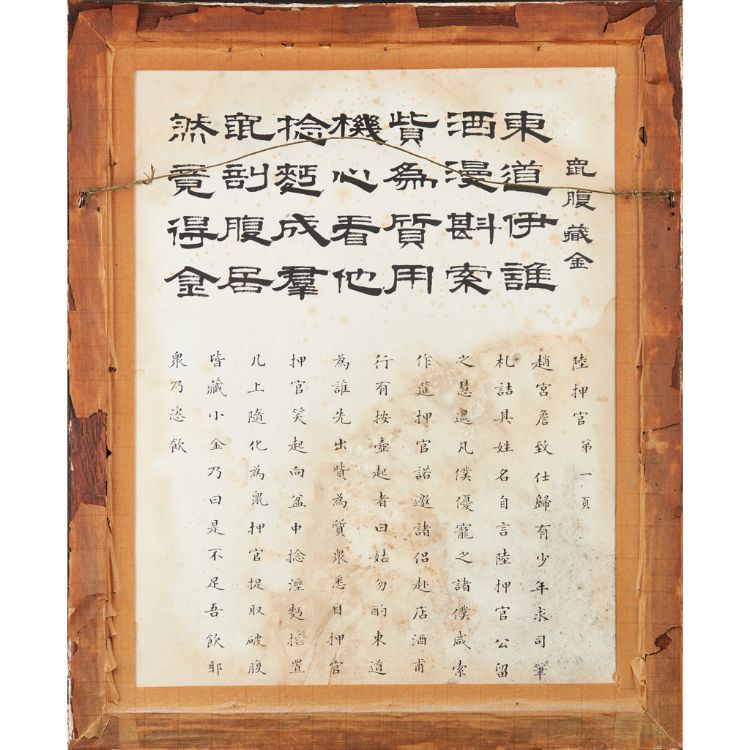 鼠腹藏金
東道伊誰
酒漫斟索
貲為質用
機心看他
捻麪成羣
鼠剖腹居
然竟得金
陸押官第一頁
趙宮詹致仕歸有少年求司筆
札詰其姓名自言陸押官公留
之慧過凡僕優寵之諸僕咸索
作筵押官諾邀諸侶赴店酒甫
行有按壺起者曰姑勿酌東道
為誰先出貲為質眾悉目押官
押官笑起向盆中捻溼麪掐置
几上隨化為鼠押官提取破腹
皆藏小金乃曰是不足吾飲耶
眾乃恣飲